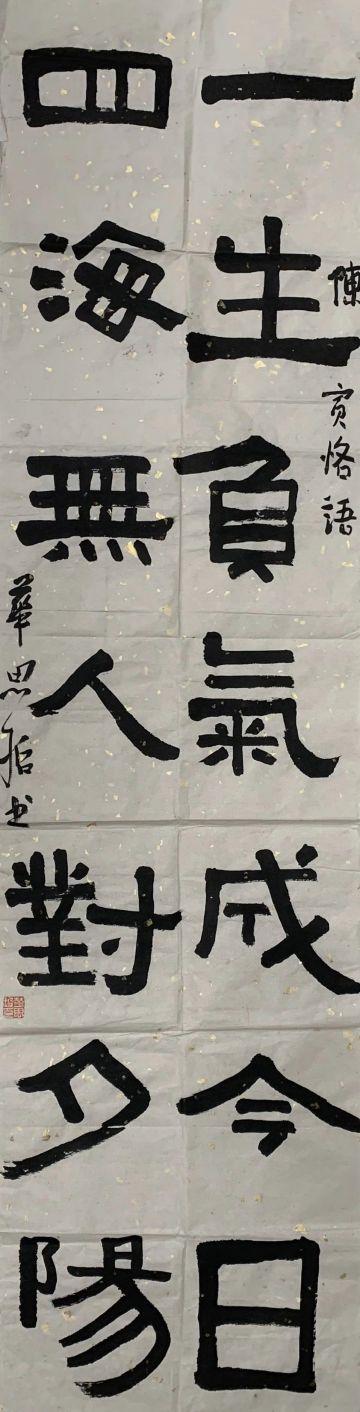 陳寅恪語
一生負氣成今日
四海無人對夕陽
華思拓书